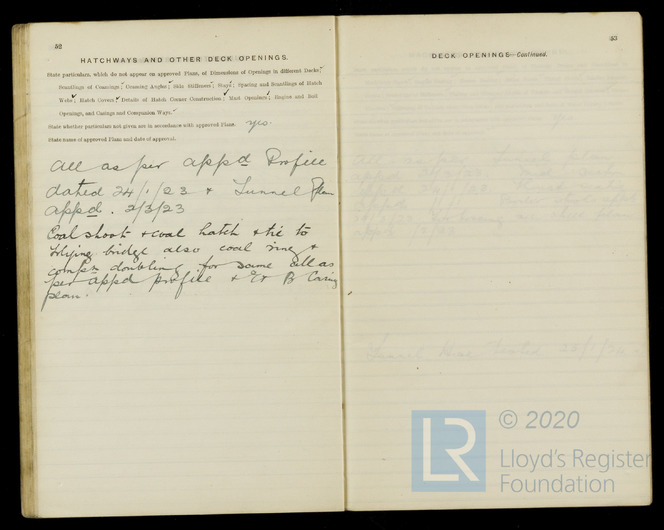 52
HATCHWAYS AND OTHER DECK OPENINGS.
State particulars, which do not appear on approved Plans, of Dimensions of Openings in different Decks;
Scantlings of Coamings; Coaming Angles; Side Stiffeners; Stays; Spacing and Scantlings of Hatch
Webs; Hatch Covers; Details of Hatch Corner Construction; Mast Openings; Engine and Boiler
Openings, and Casings and Companion Ways.
State whether particulars not given are in accordance with approved Plans. yes.
State name of approved Plans and date of approval.
All as per appd Profile
dated 24/1/23 & Tunnel Plan
appd. 2/3/23
Coal shoot & coal hatch & tie to
bridge also coal ring &
doubling for same all as
per appd profile & B Casing
plan.
53
DECK OPENINGS—Continued.
Tunnel tested
© 2020
LR
Lloyd's Register
Foundation